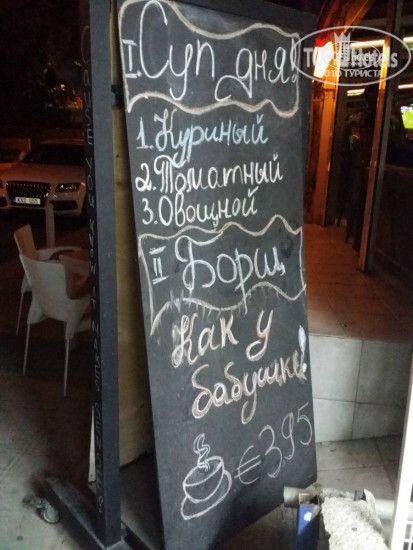 I Суп дня!
1. Куриный
2. Томатный
3. Овощной
II Борщ
Как у
бабушки!
€3,95
TopHotels
ФОТО ТУРИСТА